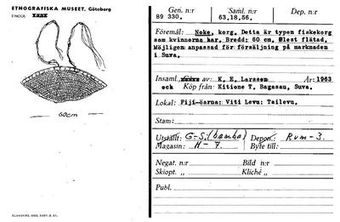 ETNOGRAFISKA MUSEET, Göteborg
60cm
Gen.r
89 330.
Saml. n:r
63,18,56.
Dep. n:r
Föremål: Noke, korg. Detta är typen fiskekorg
som kvinnorna har. Bredd: 60 cm, flätad.
Möjligen anpassad för försäljning på marknaden
i Suva.
Insaml. av: K. E. Larsson År: 1963
och Köp från: Kitione T. Bagasau, Suva.
Lokal: Fiji-öarna: Viti Levu: Tailevu.
Stam:
Utställt: G-S. (bambu) Depon.: Rum-3.
Magasin: H-7. Byte till:
Negat. n:r Bild n:r
Skiopt. „ Kliché „
Publ.